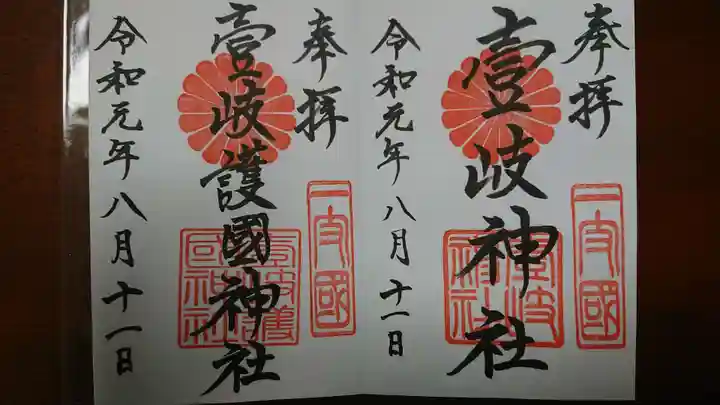 奉拝
一支國
壹岐神社
壹岐神社
令和元年八月十一日
奉拝
一支國
壹岐護國神社
壹岐護國神社
令和元年八月十一日